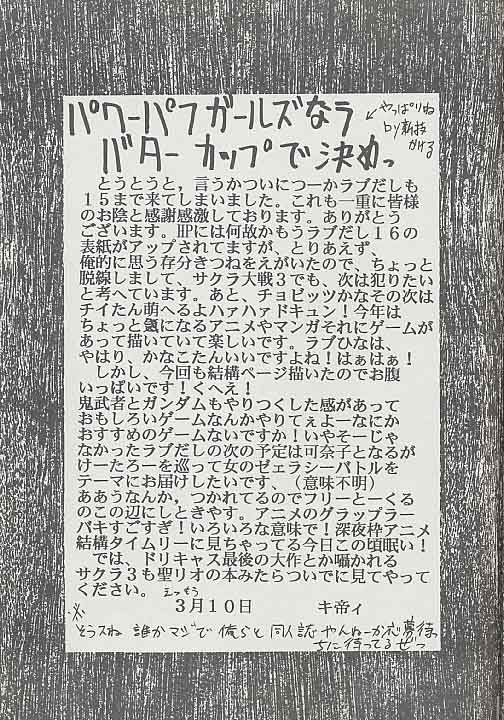 パワーパフガールズなラ
バターカップで決めっ
やっぱりね
とうとうと，言うかついにつーかラブだしも
１５まで来てしまいました。これも一重に皆様
のお陰と感謝感激しております。ありがとう
ございます。HPには何故かもうラブだし１６の
表紙がアップされてますが、とりあえず、
俺的に思う存分きつねをえがいたので、ちょっと
脱線しまして、サクラ大戦３でも、次は犯りたい
と考へています。あと、チョビッツかなその次は
チイたん萌へるよハァハァドキュン！今年は
ちょっと氣になるアニメやマンガそれにゲームが
あって描いていて楽しいです。ラブひなは、
やはり、かなこたんいいですよね！はぁはぁ！
しかし、今回も結構ページ描いたのでお腹
いっぱいです！くへえ！
鬼武者とガンダムもやりつくした感があって
おもしろいゲームなんかやりてぇよーなにか
おすすめのゲームないですか！いやそーじゃ
なかったラブだしの次の予定は可奈子となるが
けーたろーを巡って女のゼェラシーバトルを
テーマにお届けしたいです、（意味不明）
ああうなんか，つかれてるのでフリーとーくる
のこの辺にしときやす。アニメのグラップラー
バキすごすぎ！いろいろな意味で！深夜枠アニメ
結構タイムリーに見ちゃってる今日この頃眠い！
では、ドリキャス最後の大作とか囁かれる
サクラ３も聖リオの本みたらついでに見てやって
ください。
３月１０日　　キ帝ィ
※そうスね 誰かマジで俺らと同人誌やんねーか応募待っ
待ってるぜっ